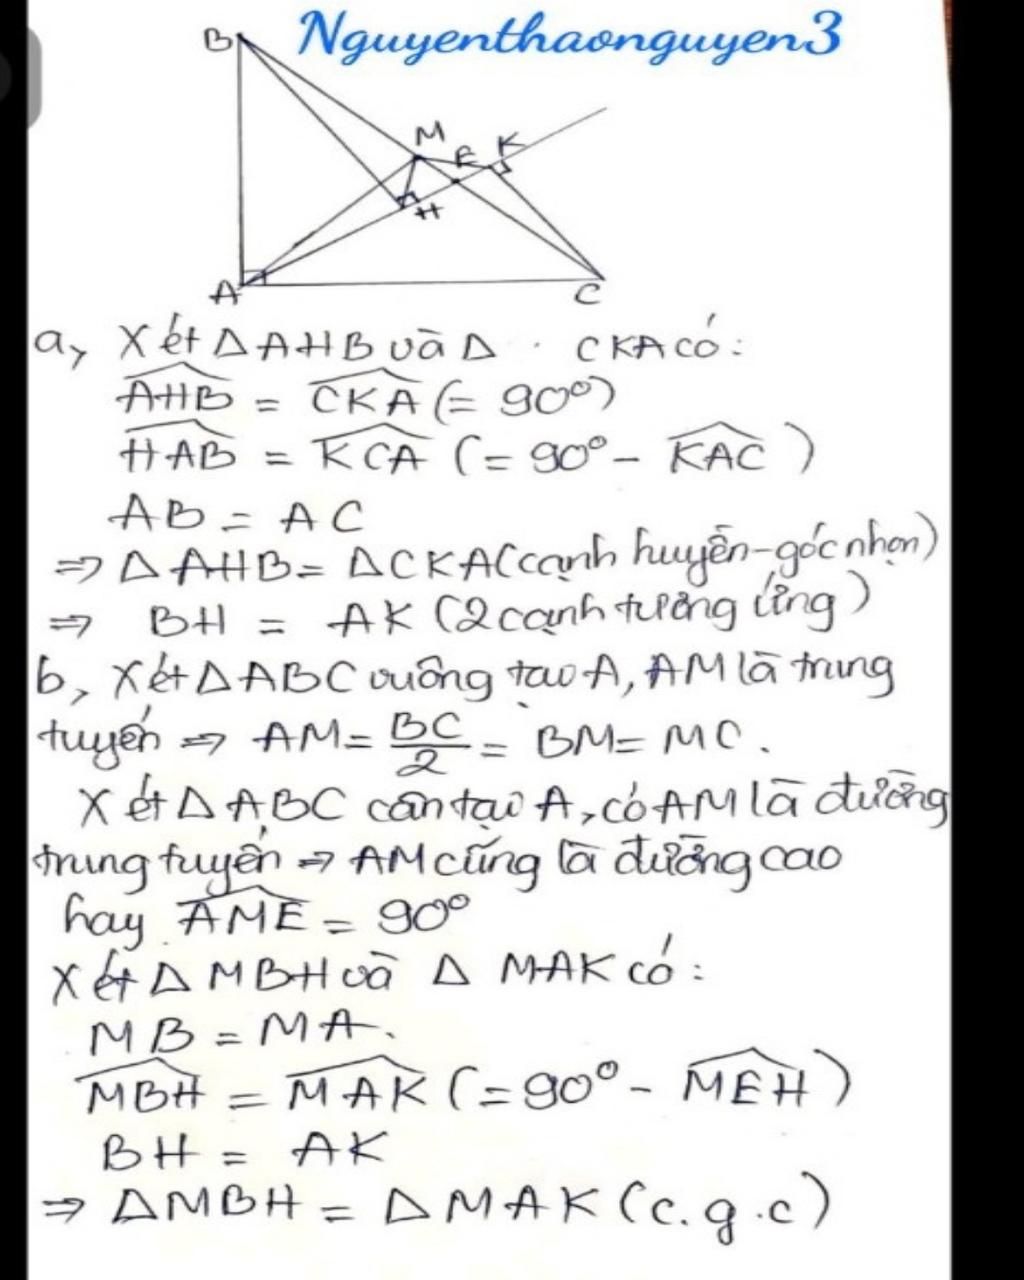 Nguyenthaonguyen3
B
M
E
K
H
A
C
a, Xét ΔAHB và Δ CKA có:
\widehat{AHB} = \widehat{CKA} (= 90°)
\widehat{HAB} = \widehat{KCA} (= 90° - \widehat{KAC})
AB = AC
⇒ ΔAHB = ΔCKA (cạnh huyền-góc nhọn)
⇒ BH = AK (2 cạnh tương ứng)
b, Xét ΔABC vuông tại A, AM là trung
tuyến ⇒ AM = \frac{BC}{2} = BM = MC.
Xét ΔABC cân tại A, có AM là đường
trung tuyến ⇒ AM cũng là đường cao
hay \widehat{AME} = 90°
Xét ΔMBH và Δ MAK có:
MB = MA.
\widehat{MBH} = \widehat{MAK} (= 90° - \widehat{MEH})
BH = AK
⇒ ΔMBH = ΔMAK (c.g.c)